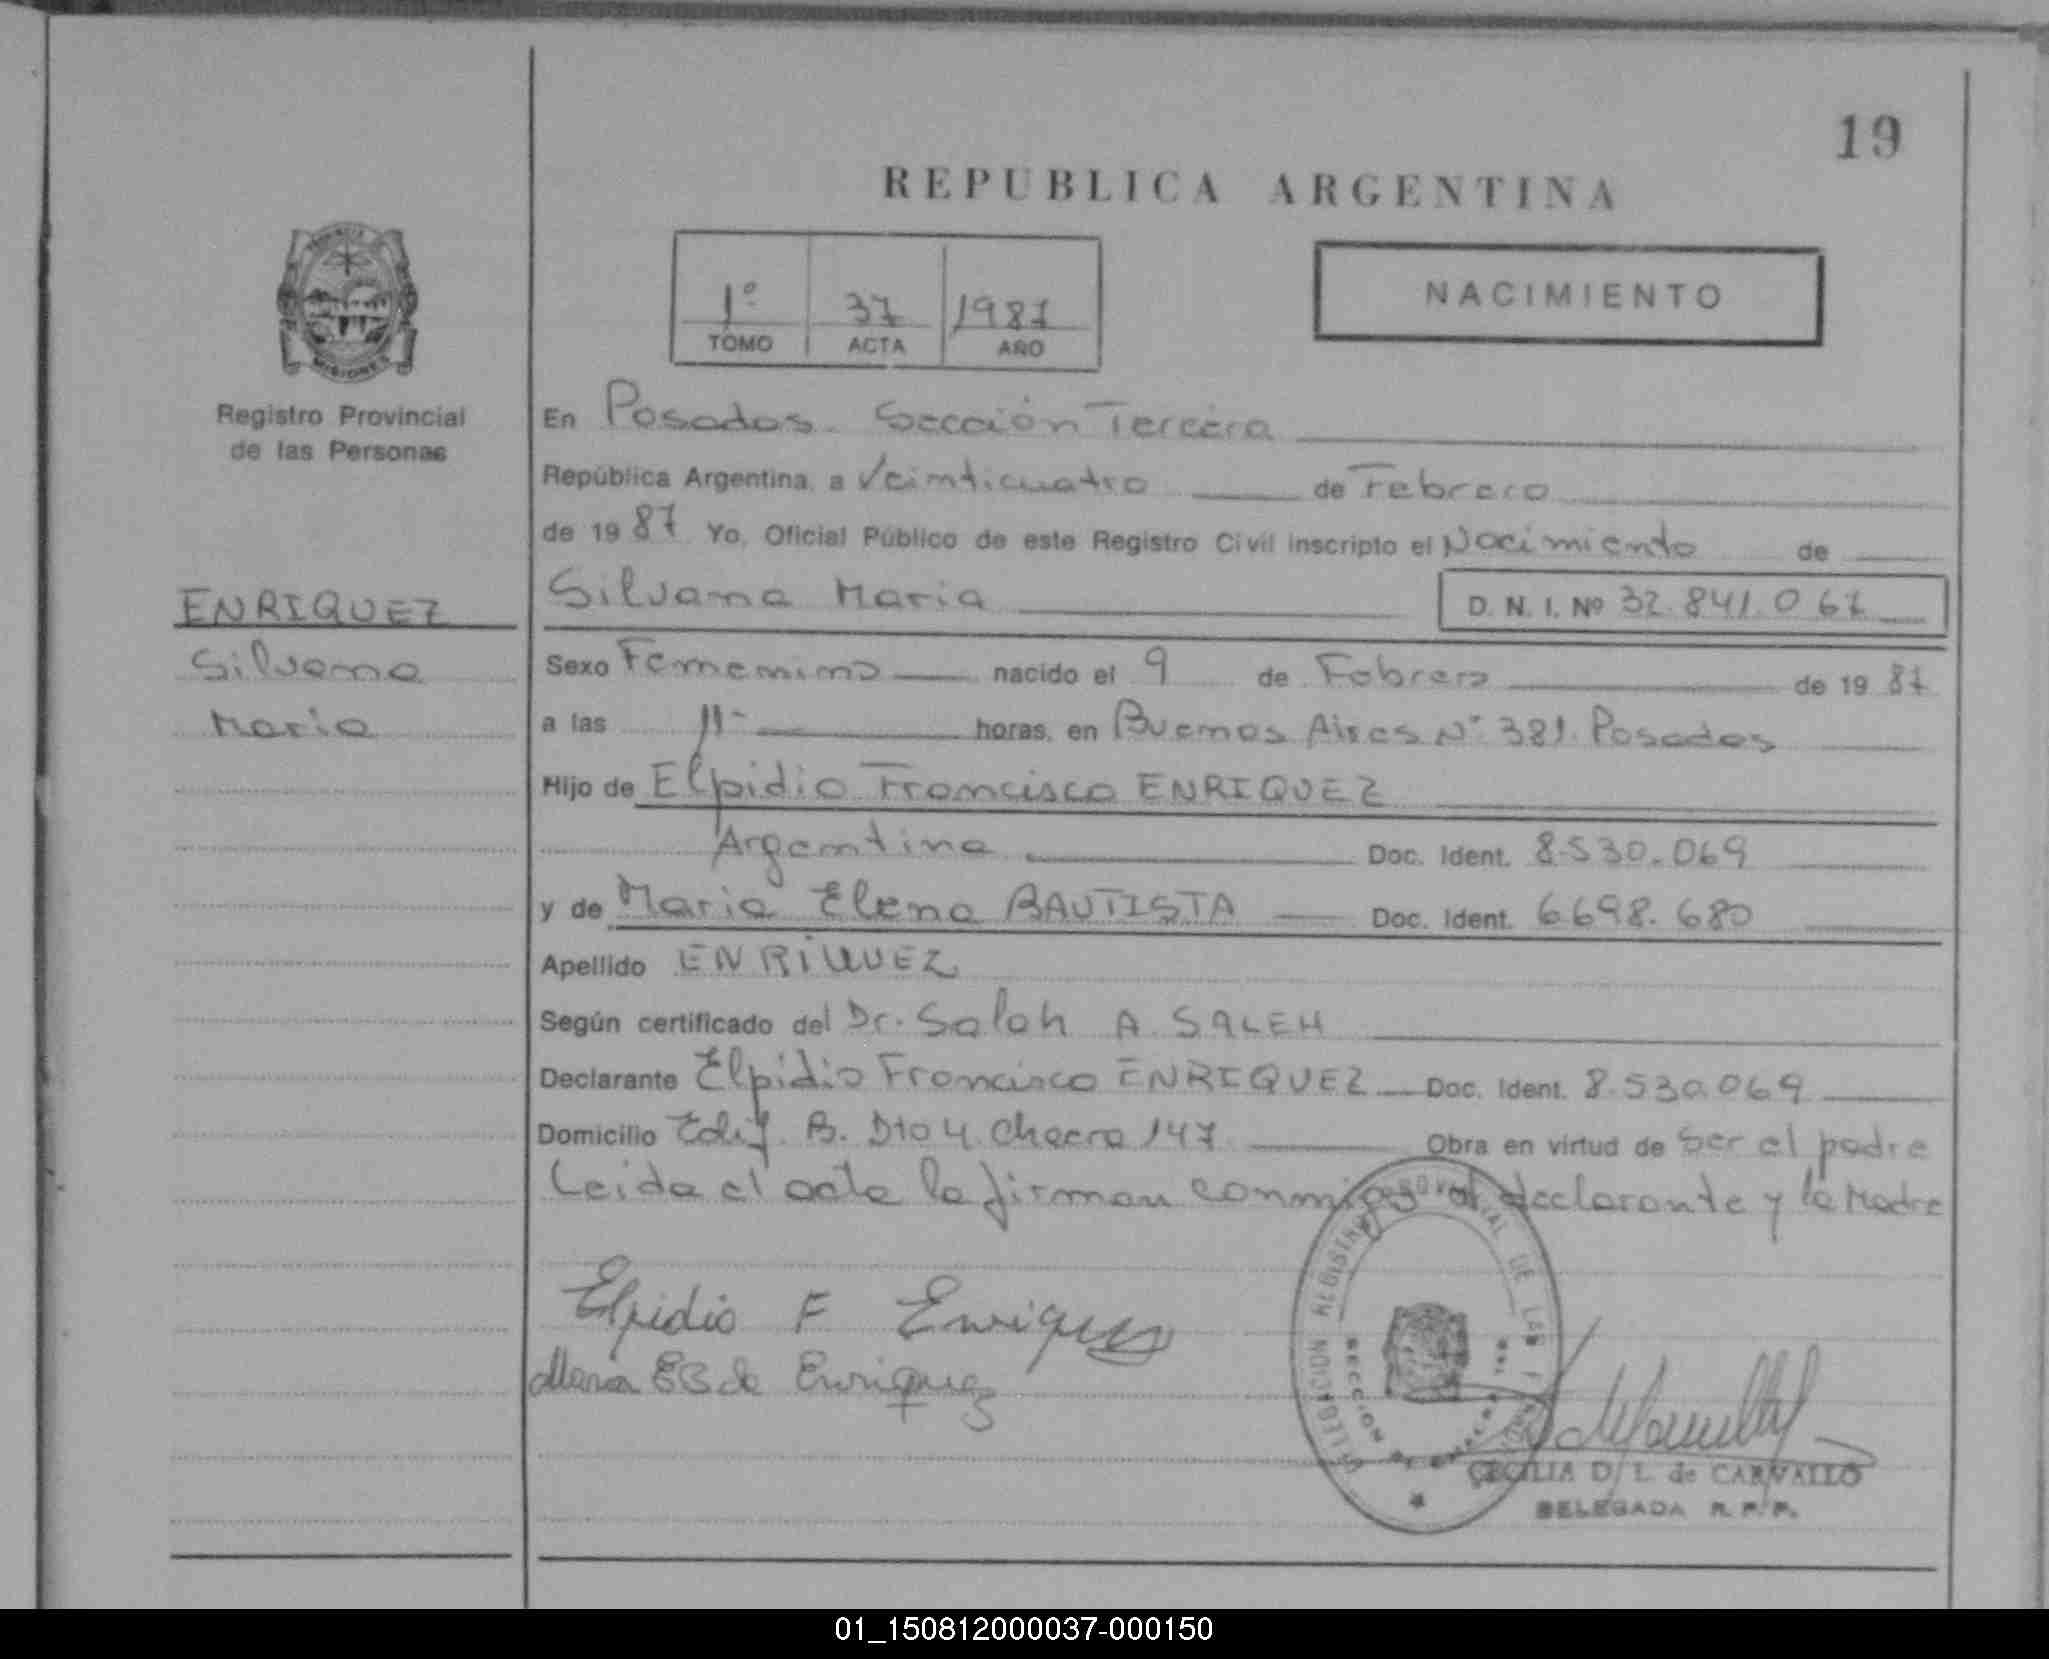 19
REPUBLICA ARGENTINA
PROVINCIA
MISIONES
Registro Provincial
de las Personas
1º 37 1987
TOMO ACTA AÑO
NACIMIENTO
En Posadas. Sección Tercera
República Argentina, a Veinticuatro de Febrero
de 1987 Yo, Oficial Público de este Registro Civil inscripto el Nacimiento de
Silvana Maria D. N. I. Nº 32.841.067
ENRIQUEZ
Silvana
Maria
Sexo Femenino nacido el 9 de Febrero de 1987
a las 11- horas, en Buenos Aires Nº 381. Posadas
Hijo de Elpidio Francisco ENRIQUEZ
Argentina Doc. Ident. 8.530.069
y de Maria Elena BAUTISTA Doc. Ident. 6.698.680
Apellido ENRIQUEZ
Según certificado del Dr. Salah A. SALEH
Declarante Elpidio Francisco ENRIQUEZ Doc. Ident. 8.530.069
Domicilio Edif. B. Dto 4 Chacra 147 Obra en virtud de ser el padre
Leida el acta la firman conmigo el declarante y la Madre
Elpidio F Enriquez
Maria E B de Enriquez
DELEGACION REGISTRO PROVINCIAL DE LAS
SECCION
CECILIA D. L. de CARVALLO
DELEGADA R. P. P.
01_150812000037-000150